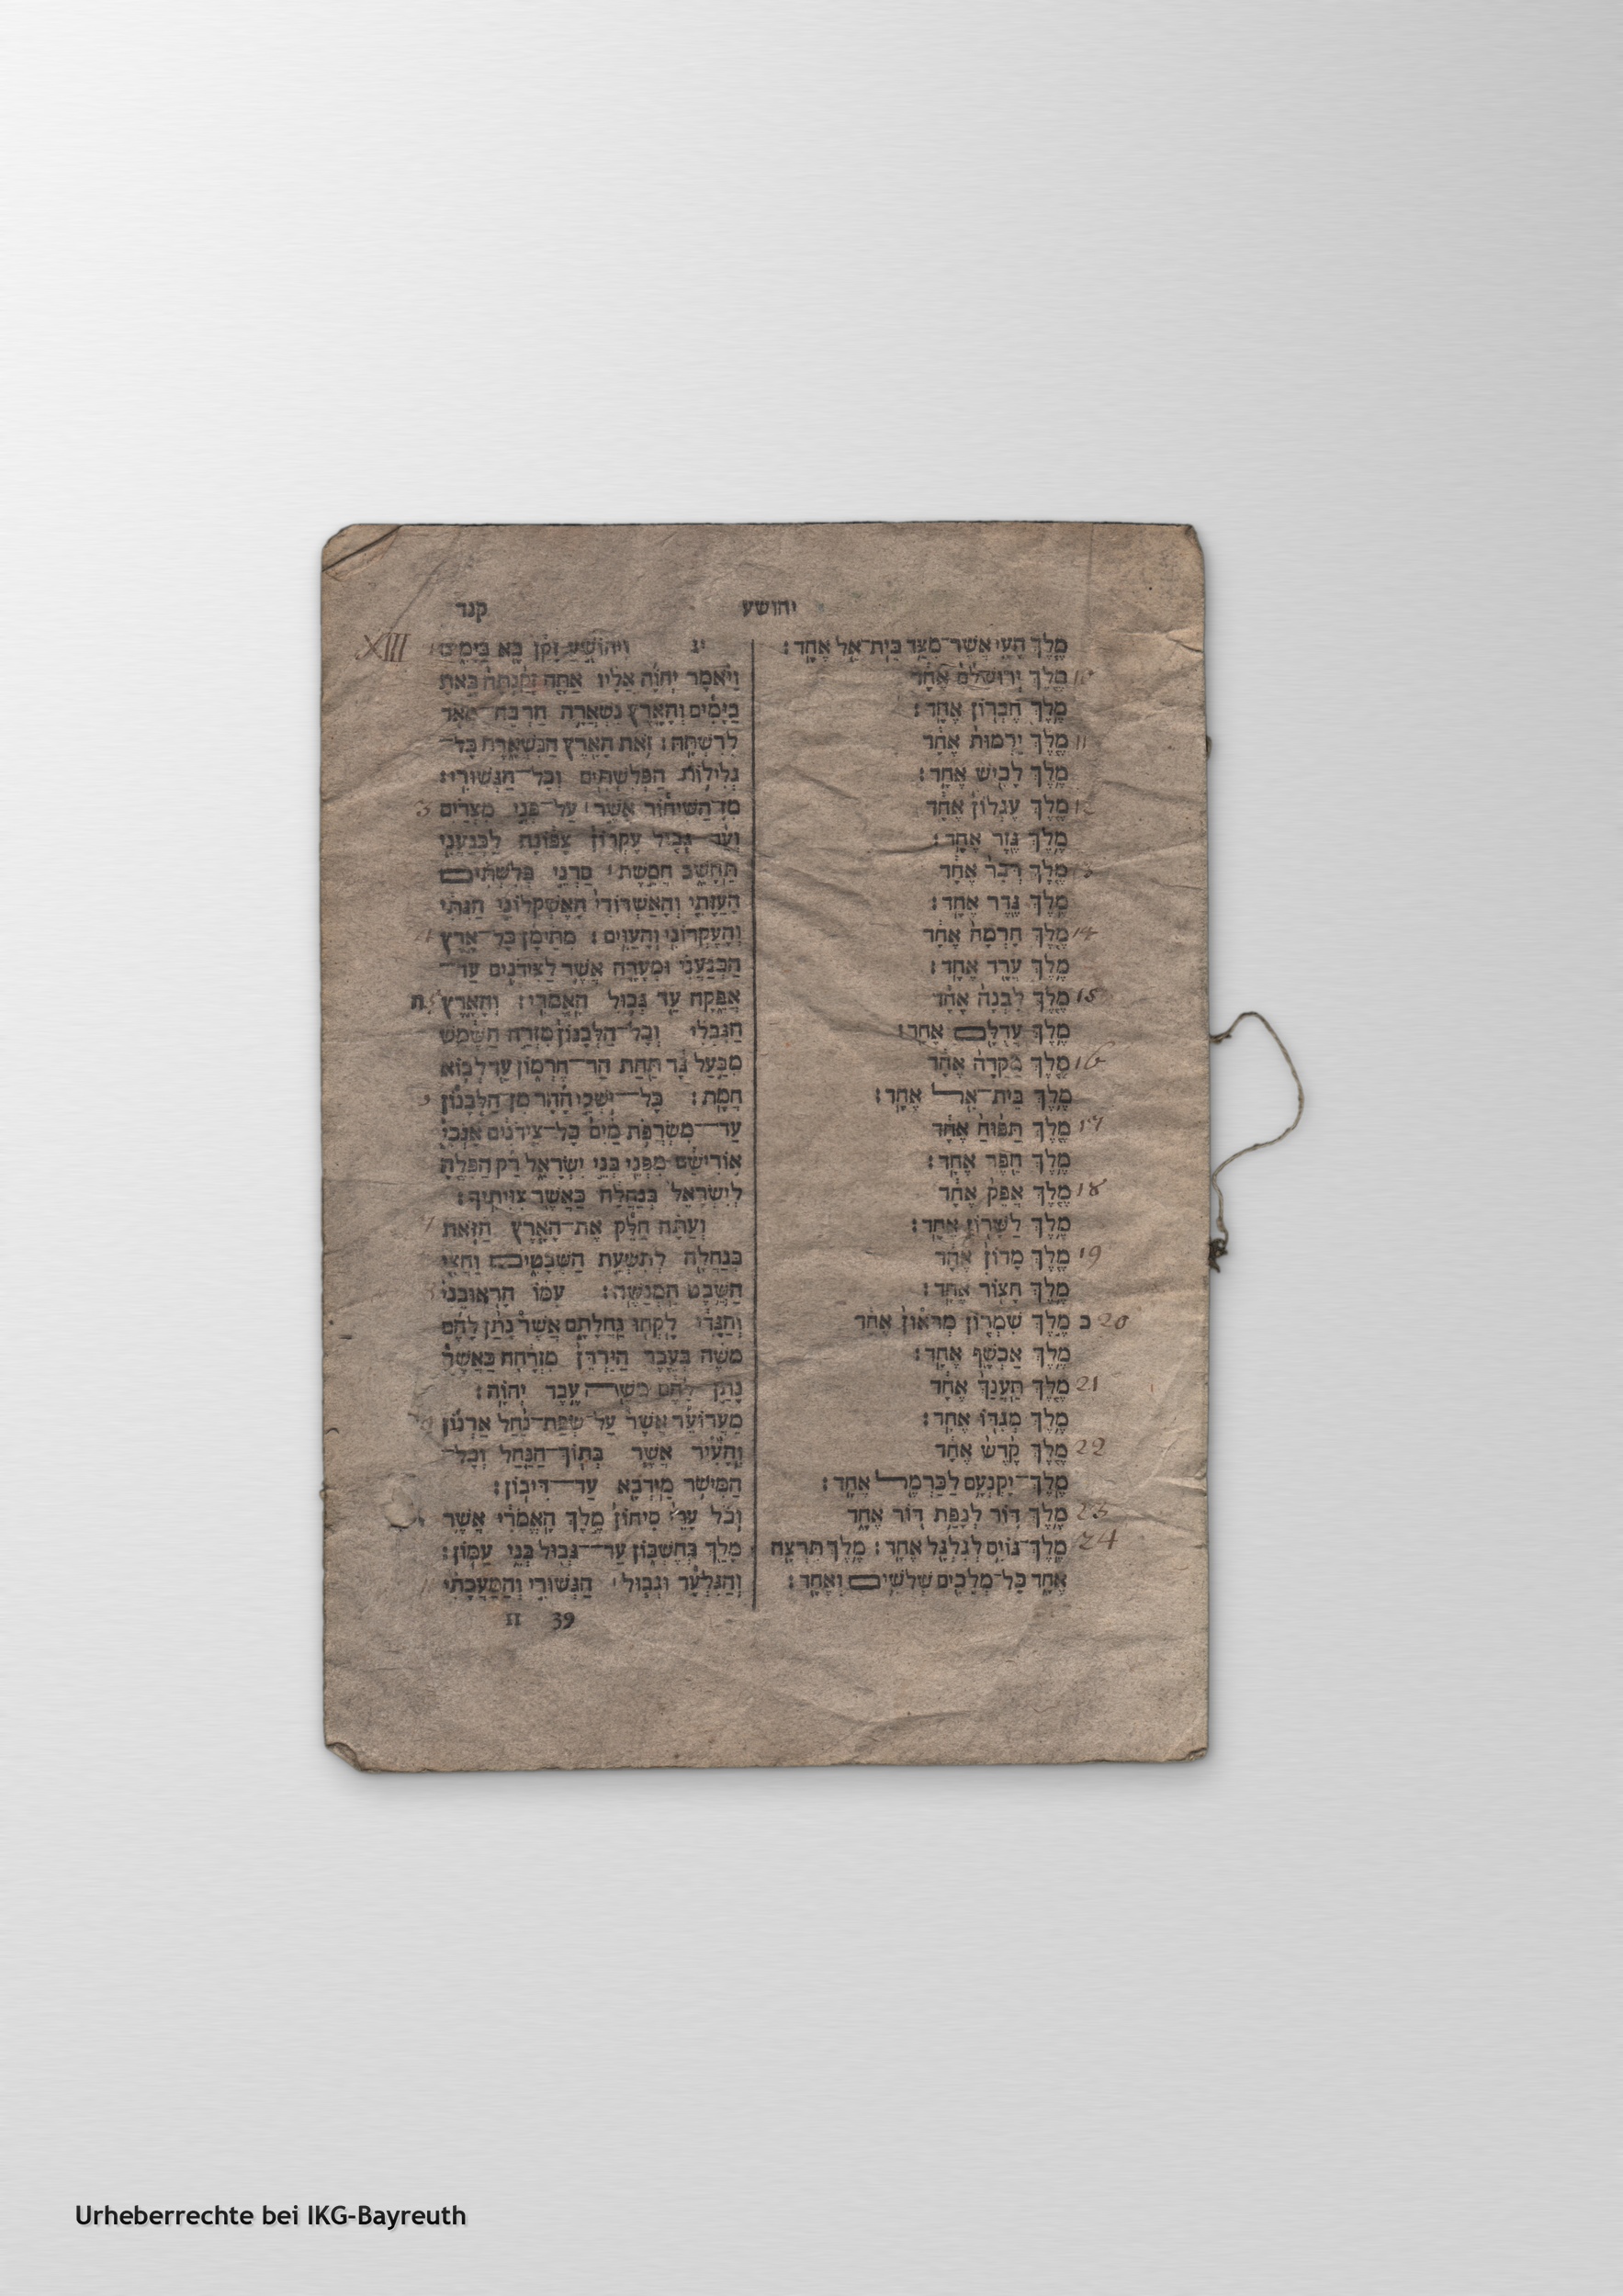 יהושע
קנד
מֶלֶךְ הָעַי אֲשֶׁר־מִצַּד בֵּית־אֵל אֶחָד׃
10 מֶלֶךְ יְרוּשָׁלִַם אֶחָד
מֶלֶךְ חֶבְרוֹן אֶחָד׃
11 מֶלֶךְ יַרְמוּת אֶחָד
מֶלֶךְ לָכִישׁ אֶחָד׃
12 מֶלֶךְ עֶגְלוֹן אֶחָד
מֶלֶךְ גֶּזֶר אֶחָד׃
13 מֶלֶךְ דְּבִר אֶחָד
מֶלֶךְ גֶּדֶר אֶחָד׃
14 מֶלֶךְ חָרְמָה אֶחָד
מֶלֶךְ עֲרָד אֶחָד׃
15 מֶלֶךְ לִבְנָה אֶחָד
מֶלֶךְ עֲדֻלָּם אֶחָד׃
16 מֶלֶךְ מַקֵּדָה אֶחָד
מֶלֶךְ בֵּית־אֵל אֶחָד׃
17 מֶלֶךְ תַּפּוּחַ אֶחָד
מֶלֶךְ חֵפֶר אֶחָד׃
18 מֶלֶךְ אֲפֵק אֶחָד
מֶלֶךְ לַשָּׁרוֹן אֶחָד׃
19 מֶלֶךְ מָדוֹן אֶחָד
מֶלֶךְ חָצוֹר אֶחָד׃
20 כ מֶלֶךְ שִׁמְרוֹן מְראוֹן אֶחָד
מֶלֶךְ אַכְשָׁף אֶחָד׃
21 מֶלֶךְ תַּעְנַךְ אֶחָד
מֶלֶךְ מְגִדּוֹ אֶחָד׃
22 מֶלֶךְ קֶדֶשׁ אֶחָד
מֶלֶךְ־יָקְנְעָם לַכַּרְמֶל אֶחָד׃
23 מֶלֶךְ דּוֹר לְנָפַת דּוֹר אֶחָד
24 מֶלֶךְ־גּוֹיִם לְגִלְגָּל אֶחָד׃ מֶלֶךְ תִּרְצָה
אֶחָד כָּל־מְלָכִים שְׁלֹשִׁים וְאֶחָד׃
XIII יג וִיהוֹשֻׁעַ זָקֵן בָּא בַּיָּמִים
וַיֹּאמֶר יְהוָה אֵלָיו אַתָּה זָקַנְתָּה בָּאתָ
בַיָּמִים וְהָאָרֶץ נִשְׁאֲרָה הַרְבֵּה־מְאֹד
לְרִשְׁתָּהּ׃ זֹאת הָאָרֶץ הַנִּשְׁאָרֶת כָּל־
גְּלִילוֹת הַפְּלִשְׁתִּים וְכָל־הַגְּשׁוּרִי׃
3 מִן הַשִּׁיחוֹר אֲשֶׁר עַל־פְּנֵי מִצְרַיִם
וְעַד גְּבוּל עֶקְרוֹן צָפוֹנָה לַכְּנַעֲנִי
תֵּחָשֵׁב חֲמֵשֶׁת סַרְנֵי פְלִשְׁתִּים
הָעַזָּתִי וְהָאַשְׁדּוֹדִי הָאֶשְׁקְלוֹנִי הַגִּתִּי
וְהָעֶקְרוֹנִי וְהָעַוִּים׃ מִתֵּימָן כָּל־אֶרֶץ
הַכְּנַעֲנִי וּמְעָרָה אֲשֶׁר לַצִּידֹנִים עַד־
ה 5 אֲפֵקָה עַד גְּבוּל הָאֱמֹרִי׃ וְהָאָרֶץ
הַגִּבְלִי וְכָל־הַלְּבָנוֹן מִזְרַח הַשֶּׁמֶשׁ
מִבַּעַל גָּד תַּחַת הַר־חֶרְמוֹן עַד לְבוֹא
חֲמָת׃ כָּל־יֹשְׁבֵי הָהָר מִן הַלְּבָנוֹן
עַד־מִשְׂרְפֹת מַיִם כָּל־צִידֹנִים אָנֹכִי
אוֹרִישֵׁם מִפְּנֵי בְּנֵי יִשְׂרָאֵל רַק הַפִּלֶהָ
לְיִשְׂרָאֵל בְּנַחֲלָה כַּאֲשֶׁר צִוִּיתִיךָ׃
7 וְעַתָּה חַלֵּק אֶת־הָאָרֶץ הַזֹּאת
בְּנַחֲלָה לְתִשְׁעַת הַשְּׁבָטִים וַחֲצִי
הַשֵּׁבֶט הַמְנַשֶּׁה׃ עִמּוֹ הָראוּבֵנִי
וְהַגָּדִי לָקְחוּ נַחֲלָתָם אֲשֶׁר נָתַן לָהֶם
מֹשֶׁה בְּעֵבֶר הַיַּרְדֵּן מִזְרָחָה כַּאֲשֶׁר
נָתַן לָהֶם מֹשֶׁה עֶבֶד יְהוָה׃
מֵעֲרוֹעֵר אֲשֶׁר עַל שְׂפַת־נַחַל אַרְנוֹן
וְהָעִיר אֲשֶׁר בְּתוֹךְ־הַנַּחַל וְכָל־
הַמִּישֹׁר מֵידְבָא עַד־דִּיבוֹן׃
וְכֹל עָרֵי סִיחוֹן מֶלֶךְ הָאֱמֹרִי אֲשֶׁר
מָלַךְ בְּחֶשְׁבּוֹן עַד־גְּבוּל בְּנֵי עַמּוֹן׃
11 וְהַגִּלְעָד וּגְבוּל הַגְּשׁוּרִי וְהַמַּעֲכָתִי
39 II
Urheberrechte bei IKG-Bayreuth